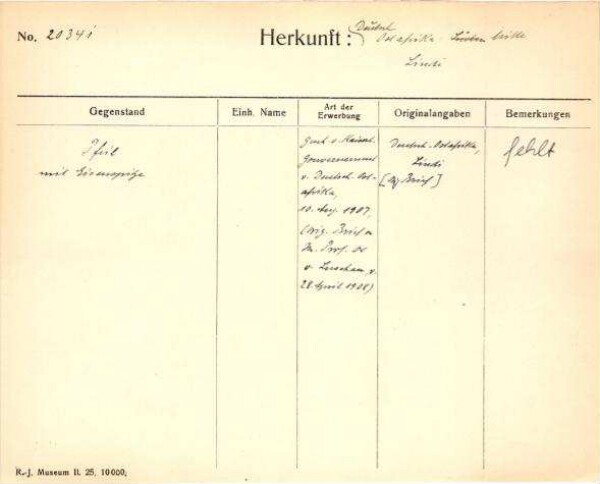 No. 20341
Herkunft: Deutsch
Ostafrika.
Lindi
Gegenstand
Einh. Name
Art der Erwerbung
Originalangaben
Bemerkungen
Pfeil
mit Eisenspitze
v. Kaiserl.
Gouvernement
v. Deutsch-Ost-
afrika,
10. Aug. 1907,
(Orig. Brief
Prof. Dr
v. Luschan, v.
28. April 1908)
Deutsch-Ostafrika,
Lindi
Brief]
fehlt
R.-J. Museum II. 25, 10000;